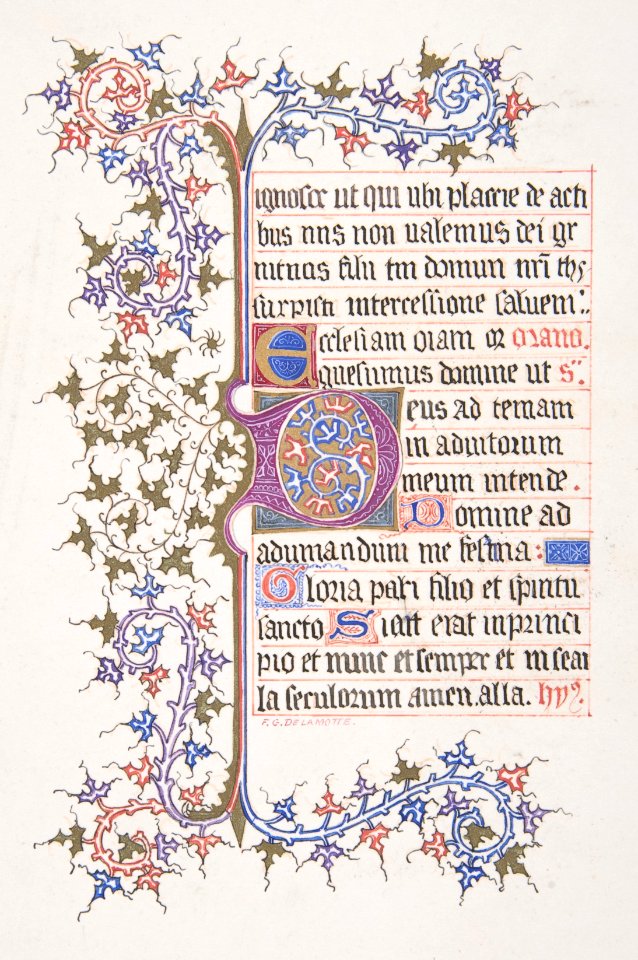 ignosce ut qui ubi placrie de acti
bus nns non ualemus dei ge
nitricis filii tm domun nri ihs
surpisti intercessione saluem
Ecclesiam oram Orano.
quesumus domine ut s
Deus ad temam
in adiutorium
meum intende.
Domine ad
adiumandum me festina:
Gloria patri filio et spiritu
sancto Sicut erat in princi
pio et nunc et semper et in secu
la seculorum amen. alla. hy
F. G. DELAMOTTE.